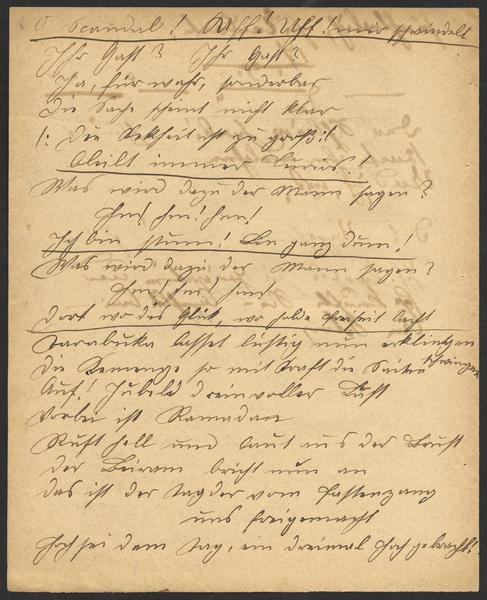 O Scandal! Uff! Uff! mir schwindelt
Ihr Gast? Ihr Gast?
Ja, für wahr, sonderbar
Die Sache scheint nicht klar
/: Die Keckheit ist zu groß :/
bleibt immer
Was wird dazu der Mann sagen?
hm! hm! hm!
Ich bin stumm! Bin ganz dumm!
Was wird dazu der Mann sagen?
hm! hm! hm!
Dort wo das Glück, wo holde Freiheit lacht
Tarabuka lasset lustig nun erklingen
Die so mit Kraft die Saiten schwingen
Auf! Jubeld drein voller Lust
Vorbei ist Ramadan
Ruft hell und laut aus der Brust
der Beiram bricht nun an
das ist der Tag der vom Fastenzwang
uns freigemacht
hoch sei dem Tag, ein dreimal hoch gebracht!